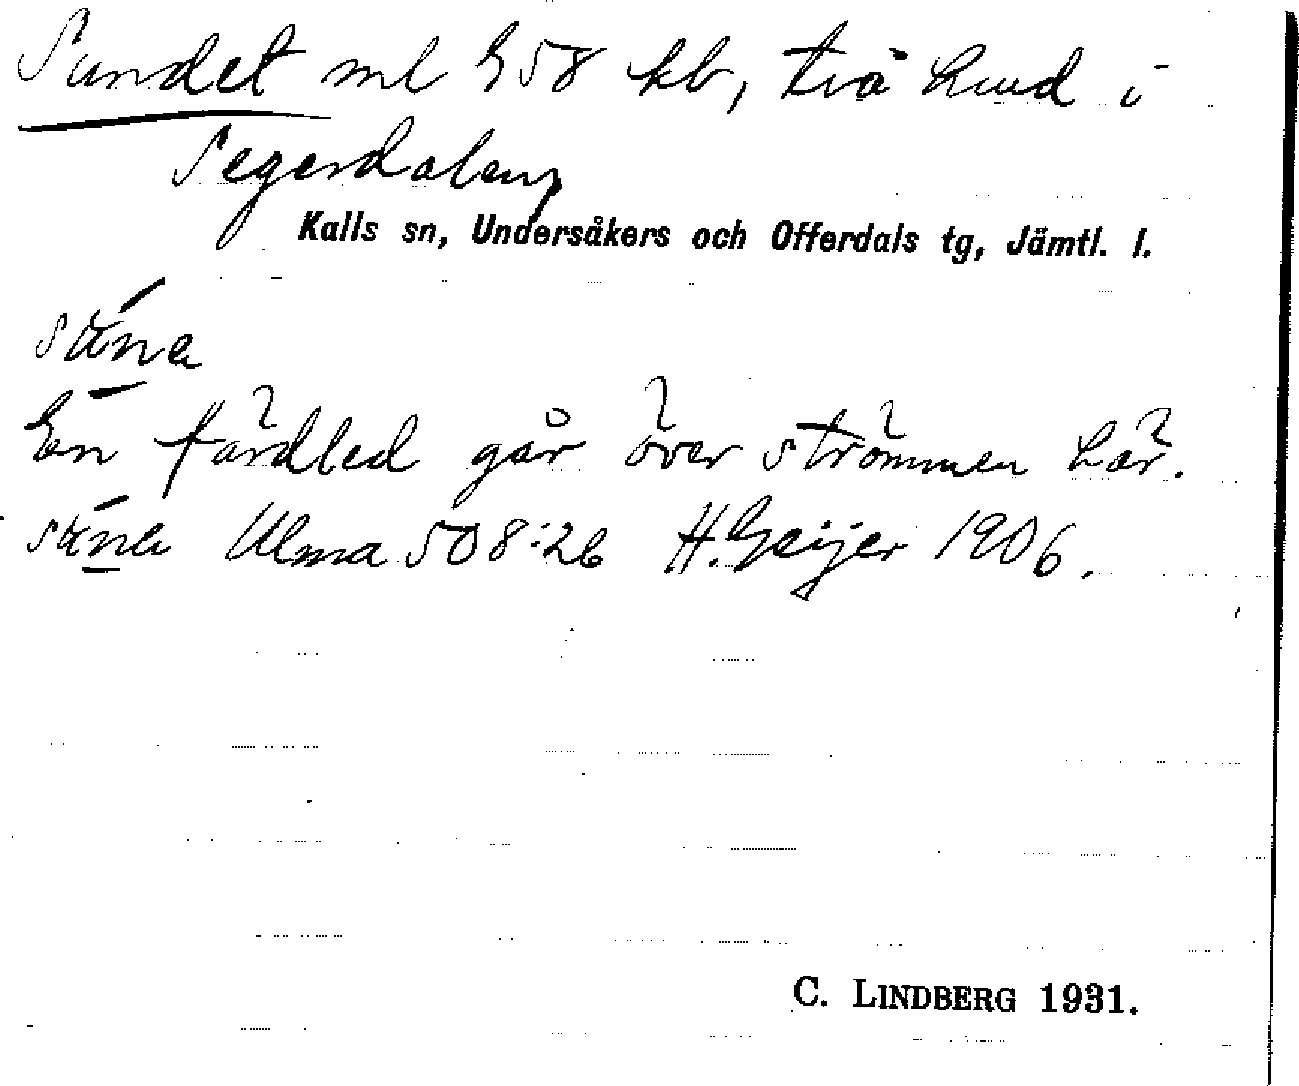 Sundet ml E58 kb, två hund i
Segerdalen,
Kalls sn, Undersåkers och Offerdals tg, Jämtl. l.
En färdled går över strömmen här.
Ulma 508:26 H. Geijer 1906.
C. LINDBERG 1931.